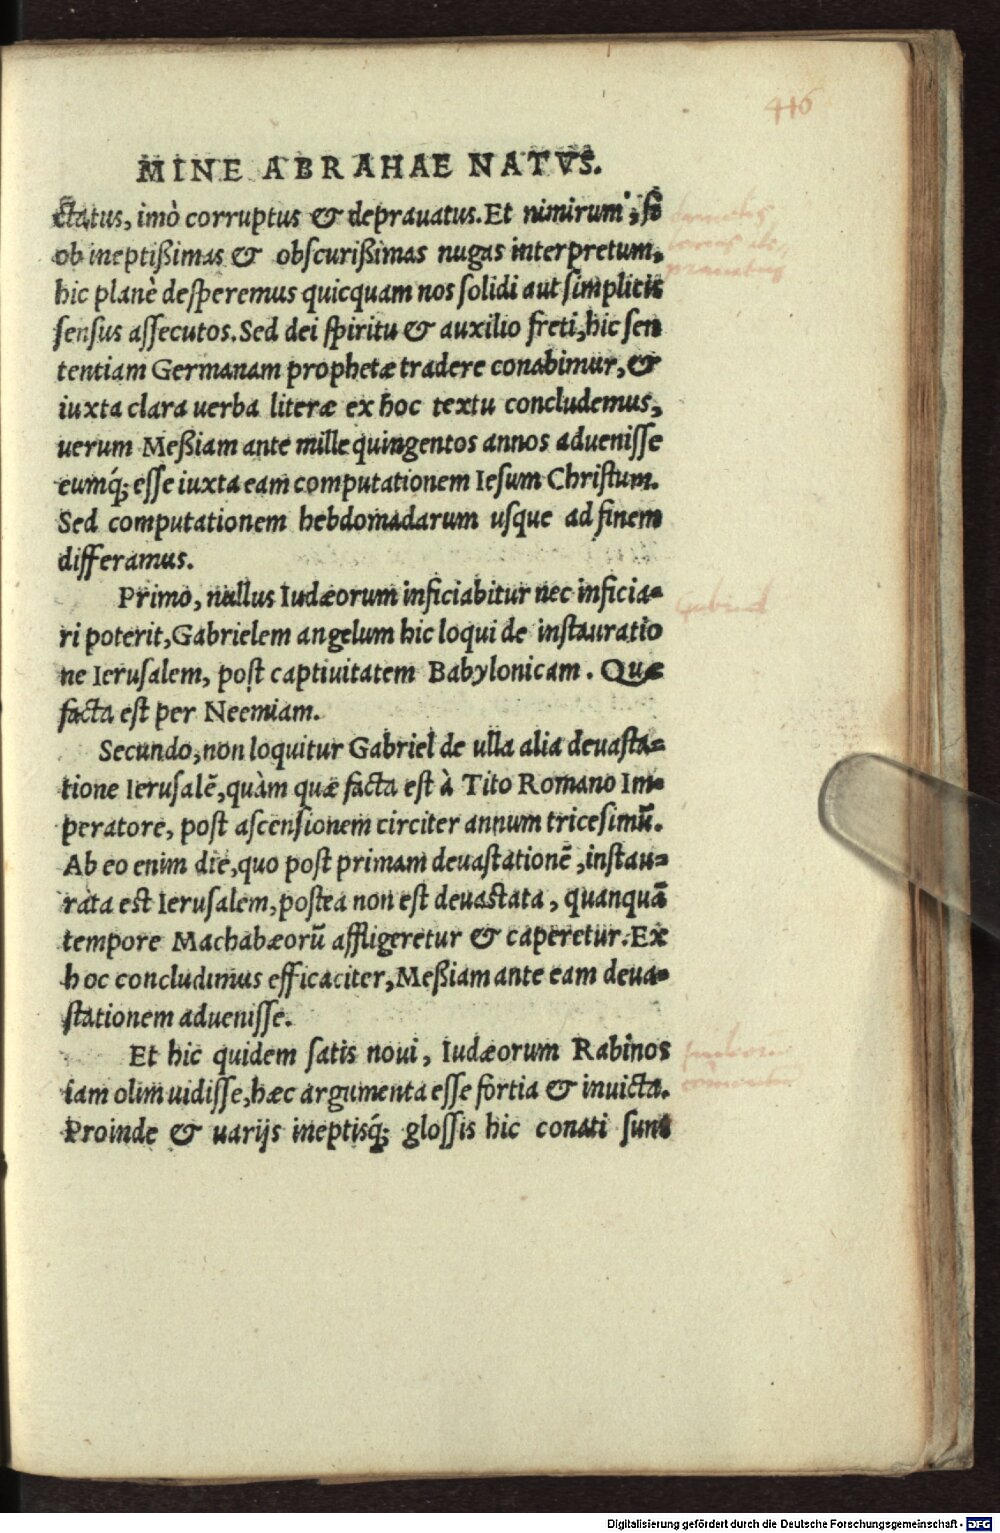 416
MINE ABRAHAE NATVS.
ctatus, imò corruptus & deprauatus. Et nimirum, si
ob ineptißimas & obscurißimas nugas interpretum,
hic planè desperemus quicquam nos solidi aut simplicis
sensus assecutos. Sed dei spiritu & auxilio freti, hic sen
tentiam Germanam prophetæ tradere conabimur, &
iuxta clara uerba literæ ex hoc textu concludemus,
uerum Meßiam ante mille quingentos annos aduenisse
eumq́; esse iuxta eam computationem Iesum Christum.
Sed computationem hebdomadarum usque ad finem
differamus.
Primo, nullus Iudæorum inficiabitur nec inficia-
ri poterit, Gabrielem angelum hic loqui de instauratio
ne Ierusalem, post captiuitatem Babylonicam. Quæ
facta est per Neemiam.
Gabriel
Secundo, non loquitur Gabriel de ulla alia deuasta-
tione Ierusalẽ, quàm quæ facta est à Tito Romano Im-
peratore, post ascensionem circiter annum tricesimũ.
Ab eo enim die, quo post primam deuastationẽ, instau-
rata est Ierusalem, postea non est deuastata, quanquã
tempore Machabæorũ affligeretur & caperetur. Ex
hoc concludimus efficaciter, Meßiam ante eam deua-
stationem aduenisse.
Et hic quidem satis noui, Iudæorum Rabinos
iam olim uidisse, hæc argumenta esse fortia & inuicta.
Proinde & uarijs ineptisq́; glossis hic conati sunt
Digitalisierung gefördert durch die Deutsche Forschungsgemeinschaft - DFG